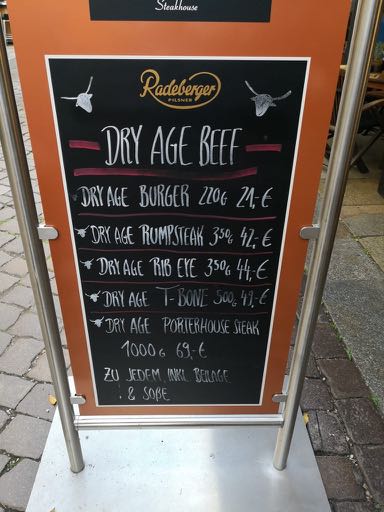 Steakhouse
Radeberger
PILSNER
DRY AGE BEEF
DRY AGE BURGER 220G 21,-€
DRY AGE RUMPSTEAK 350G 42,-€
DRY AGE RIB EYE 350G 44,-€
DRY AGE T-BONE 500G 49,-€
DRY AGE PORTERHOUSE STEAK
1000G 69,-€
ZU JEDEM, INKL BEILAGE
! & SOßE